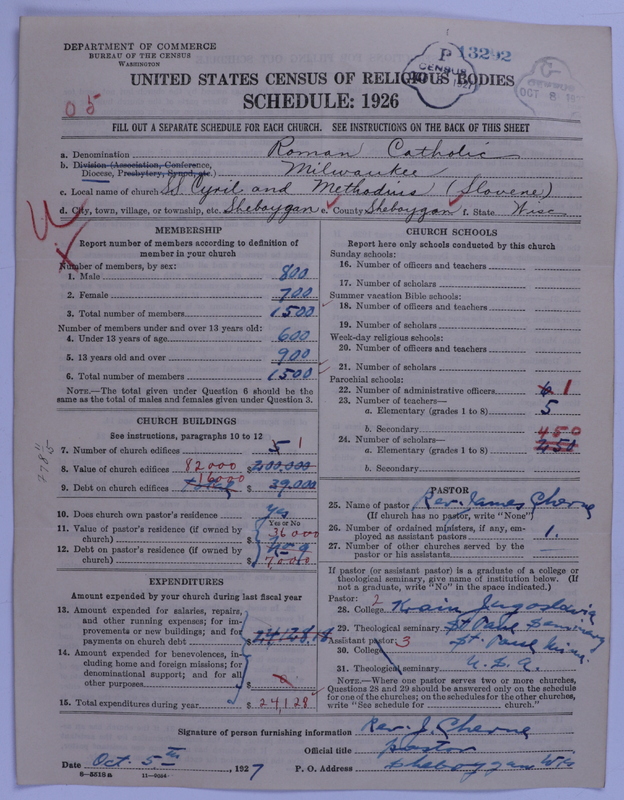 DEPARTMENT OF COMMERCE
BUREAU OF THE CENSUS
WASHINGTON
P 13292
CENSUS
1927
CENSUS
OCT 8 19
UNITED STATES CENSUS OF RELIGIOUS BODIES
SCHEDULE: 1926
05
FILL OUT A SEPARATE SCHEDULE FOR EACH CHURCH. SEE INSTRUCTIONS ON THE BACK OF THIS SHEET
a. Denomination Roman Catholic
b. Division (Association, Conference, Diocese, Presbytery, Synod, etc.) Milwaukee
c. Local name of church SS Cyril and Methodius (Slovene)
d. City, town, village, or township, etc. Sheboygan e. County Sheboygan f. State Wisc
MEMBERSHIP
Report number of members according to definition of
member in your church
Number of members, by sex:
1. Male 800
2. Female 700
3. Total number of members 1500
Number of members under and over 13 years old:
4. Under 13 years of age 600
5. 13 years old and over 900
6. Total number of members 1500
NOTE.—The total given under Question 6 should be
same as the total of males and females given under Question 3.
CHURCH BUILDINGS
See instructions, paragraphs 10 to 12
7. Number of church edifices 5 1
8. Value of church edifices 82000 $200.000
9. Debt on church edifices 16000 $39.000
10. Does church own pastor's residence? yes
Yes or No
11. Value of pastor's residence (if owned by
church) $ 36000
12. Debt on pastor's residence (if owned by
church) $ 7000
EXPENDITURES
Amount expended by your church during last fiscal year
13. Amount expended for salaries, repairs,
and other running expenses; for im-
provements or new buildings; and for
payments on church debt $
14. Amount expended for benevolences, in-
cluding home and foreign missions; for
denominational support; and for all
other purposes $ 0
15. Total expenditures during year $ 24,128
CHURCH SCHOOLS
Report here only schools conducted by this church
Sunday schools:
16. Number of officers and teachers
17. Number of scholars
Summer vacation Bible schools:
18. Number of officers and teachers
19. Number of scholars
Week-day religious schools:
20. Number of officers and teachers
21. Number of scholars
Parochial schools:
22. Number of administrative officers 1
23. Number of teachers—
a. Elementary (grades 1 to 8) 5
b. Secondary
24. Number of scholars— 450
a. Elementary (grades 1 to 8) 450
b. Secondary
PASTOR
25. Name of pastor Rev. James Cherne
(If church has no pastor, write "None")
26. Number of ordained ministers, if any, em-
ployed as assistant pastors 1.
27. Number of other churches served by the
pastor or his assistants —
If pastor (or assistant pastor) is a graduate of a college or
theological seminary, give name of institution below. (If
not a graduate, write "No" in the space indicated.)
Pastor: 2
28. College Krain Jugoslavia
29. Theological seminary St. Paul Seminary
Assistant pastor: 3
30. College St. Paul Minn.
31. Theological seminary U.S.A.
NOTE.—Where one pastor serves two or more churches,
Questions 28 and 29 should be answered only on the schedule
for one of the churches; on the schedules for the other churches,
write "See schedule for church."
Signature of person furnishing information Rev. J. Cherne
Official title pastor
Date Oct. 5th, 1927 P. O. Address Sheboygan Wis
8—3516a 11—9164